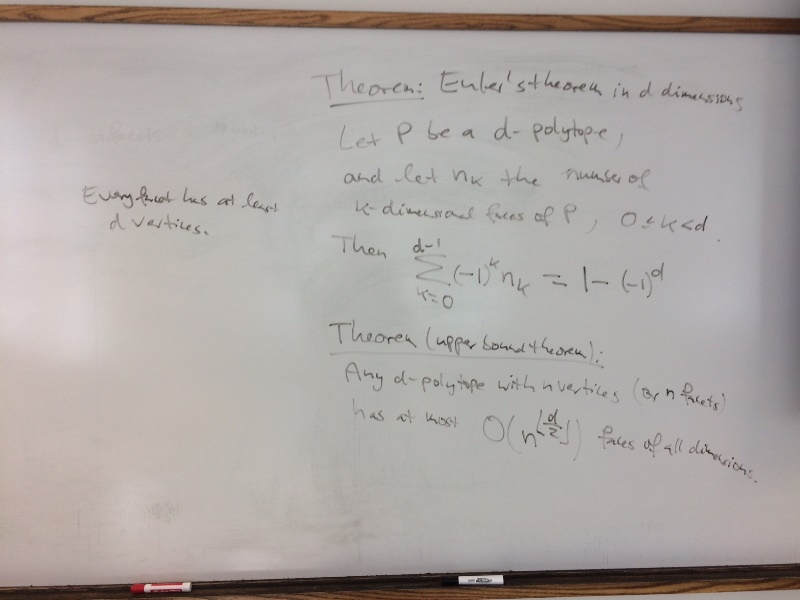 Every facet has at least
d vertices.
Theorem: Euler's theorem in d dimensions
Let P be a d-polytope,
and let nₖ the number of
k-dimensional faces of P, 0 ≤ k < d.
Then ∑_{k=0}^{d-1} (-1)^k n_k = 1 - (-1)^d
Theorem (upper bound theorem):
Any d-polytope with n vertices (or n facets)
has at most O(n^{⌊d/2⌋}) faces of all dimensions.